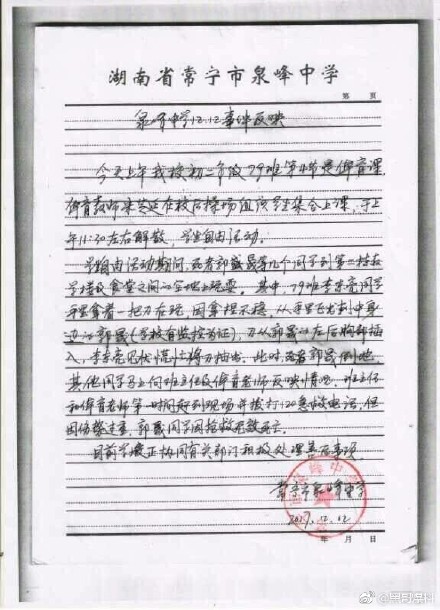 湖南省常宁市泉峰中学
第 页
泉峰中学12.12事件反映
今天上午我校初二年级79班第4节是体育课
体育教师 在校后操场组织学生集合上课,于上
午11:30左右解散,学生自由活动。
学生自由活动期间,死者郭晟 等几个同学到第二栋教
学楼及食堂之间的空地上玩耍。其中,79班李东亮同学
手里拿着一把刀在玩,因拿捏不稳,从手里飞出刺中身
边的郭晟(学校有监控为证),刀从郭晟的左后胸部插
入,李东亮见状慌忙将刀抽出。此时死者郭晟倒地,
其他同学马上向班主任及体育老师反映情况,班主任
和体育老师第一时间赶到现场并拨打120急救电话,但
因伤势过重,郭晟同学因抢救无效死亡。
目前学校正协同有关部门积极处理善后事项。
常宁市泉峰中学
2017.12.12
年 月 日